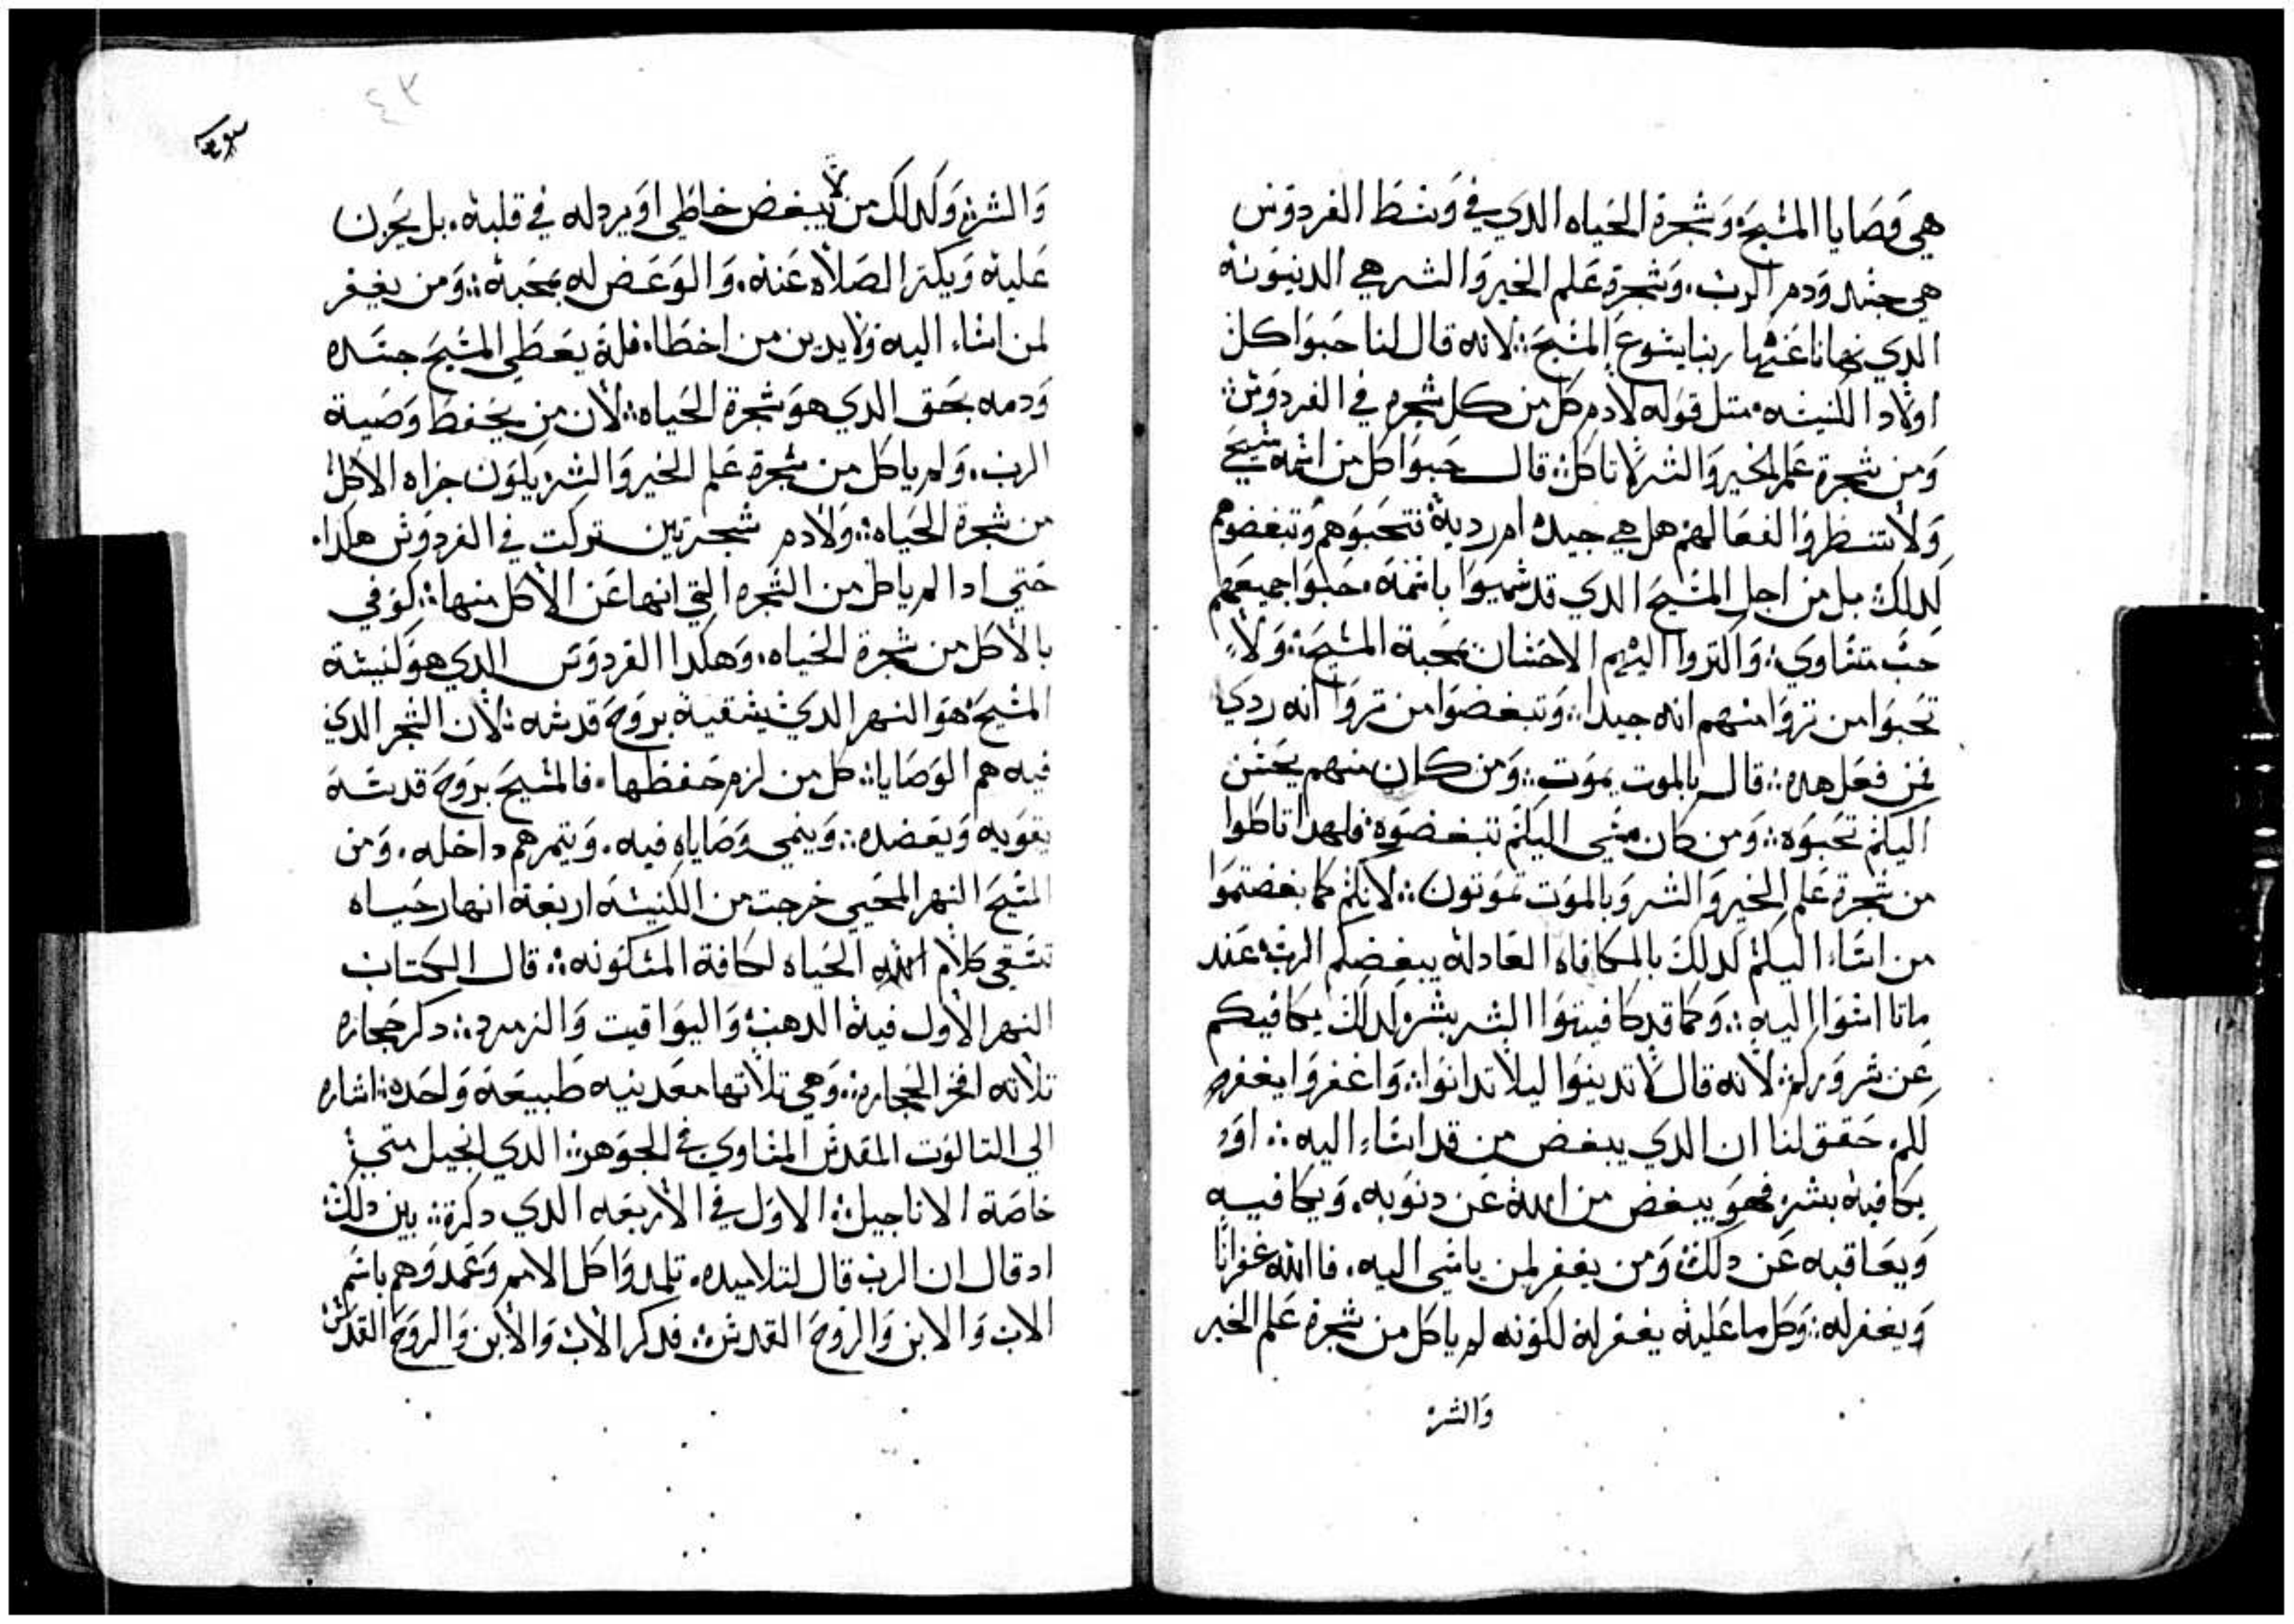 هي وصايا المسيح وشجرة الحياه الدي في وسط الفردوس
هي جسد ودم الرب. وشجرة علم الخير والشر هي الدينونه
الدي نهانا عنها ربنا يسوع المسيح: لانه قال لنا حبوا كل
اولاد الكنيسه. متل قوله لادم كل من كل شجره في الفردوس:
ومن شجرة علم الخير والشر لا تاكل: قال حبوا كل من اسمه مسيحي
ولا تنتظروا لفعالهم هل هي جيده ام رديه فتحبوهم وتبغضوهم
لدلك بل من اجل المسيح الدي قد سميوا باسمه. حبوا جميعهم
حب متساوي: واكتروا اليهم الاحسان بمحبة المسيح: ولا
تحبوا من تروا منهم انه جيدا: وتبغضوا من تروا انه ردي
فمن فعل هده: قال بالموت يموت: ومن كان منهم يحسن
اليكم تحبوه: ومن كان مسي اليكم تبغضوه: فلهدا تاكلوا
من شجرة علم الخير والشر وبالموت تموتون: لانكم كما بغضتموا
من اساء اليكم لدلك بالمكافاه العادله يبغضكم الرب عند
ماتا اسوا اليه: وكما قد كافيتوا الشر بشر لدلك يكافيكم
عن شروركم: لانه قال لا تدينوا ليلا تدانوا: واغفروا يغفر
لكم. حقق لنا ان الدي يبغض من قد اساء اليه: او
يكافيه بشر فهو يبغض من الله عن دنوبه. ويكافيه
ويعاقبه عن دلك ومن يغفر لمن ياسي اليه. فاالله غفرانا
ويغفر له: وكل ما عليه يغفر له لكونه لم ياكل من شجرة علم الخير
والشر
والشر وكدلك من لا يبغض خاطي او يردله في قلبه. بل يحزن
عليه ويكتر الصلاه عنه. والوعض له بمحبة: ومن يغفر
لمن اساء اليه ولا يدين من اخطاء فله يعطي المسيح جسده
ودمه بحق الدي هو شجرة الحياه: لان من يحفظ وصية
الرب. ولم ياكل من شجرة علم الخير والشر يكون جزاه الاكل
من شجرة الحياه: ولادم شجرتين تركت في الفردوس هكدا.
حتي ادا لم ياكل من الشجره التي انهاه عن الاكل منها: كوفي
بالاكل من شجرة الحياه. وهكدا الفردوس الدي هو كنيسة
المسيح: هو النهر الدي يسقيه بروح قدسه: لان الشجر الدي
فيه هم الوصايا: كل من لزم حفظها. فالمسيح بروح قدسه
يقويه ويعضده: وينمي وصاياه فيه. ويتمرهم داخله. ومن
المسيح النهر المحيي خرجت من الكنيسه اربعة انهار حياه
تسقي كلام الله الحياه لكافة المسكونه: قال الكتاب
النهر الاول فيه الدهب واليواقيت والزمرد: دكر حجاره
تلاته افخر الحجاره: وهي تلاتها معدنيه طبيعة واحده: اشاره
الي التالوت المقدس المتساوي في الجوهر: الدي انجيل متي
خاصة الاناجيل: الاول في الاربعه الدي دكرة: بين دلك
اد قال ان الرب قال لتلاميده. تلمدوا كل الامم وعمدوهم باسم
الاب والابن والروح القدس: فدكر الاب والابن والروح القدس